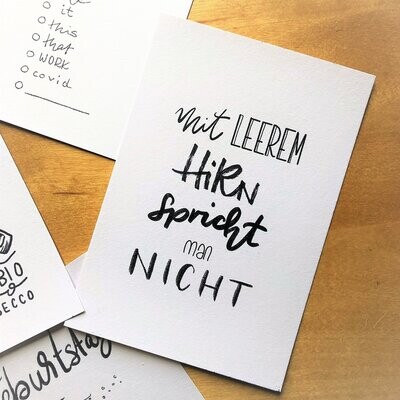 it
this
that
WORK
covid
mit LEEREM
HIRN
spricht
man
NICHT
BIO
SECCO